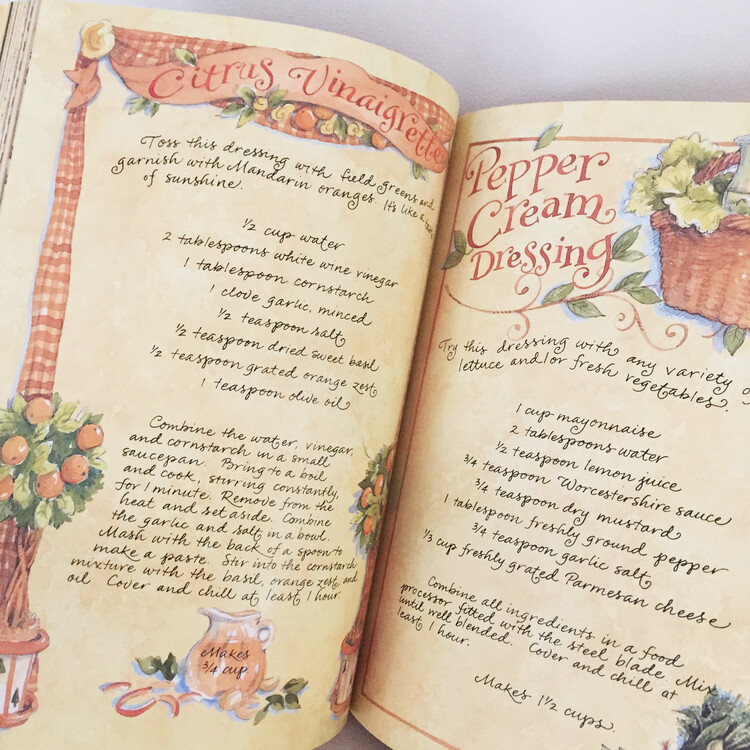 Citrus Vinaigrette
Toss this dressing with field greens and
garnish with Mandarin oranges. It's like a
of sunshine.
1/2 cup water
2 tablespoons white wine vinegar
1 tablespoon cornstarch
1 clove garlic, minced
1/2 teaspoon salt
1/2 teaspoon dried sweet basil
1/2 teaspoon grated orange zest
1 teaspoon olive oil
Combine the water, vinegar,
and cornstarch in a small
saucepan. Bring to a boil
and cook, stirring constantly,
for 1 minute. Remove from the
heat and set aside. Combine
the garlic and salt in a bowl.
Mash with the back of a spoon to
make a paste. Stir into the cornstarch
mixture with the basil, orange zest, and
oil. Cover and chill at least 1 hour.
Makes
3/4 cup
Pepper
Cream
Dressing
Try this dressing with any variety of
lettuce and/or fresh vegetables.
1 cup mayonnaise
2 tablespoons water
1/2 teaspoon lemon juice
3/4 teaspoon Worcestershire sauce
3/4 teaspoon dry mustard
1 tablespoon freshly ground pepper
3/4 teaspoon garlic salt
1/3 cup freshly grated Parmesan cheese
Combine all ingredients in a food
processor fitted with the steel blade. Mix
until well blended. Cover and chill at
least 1 hour.
Makes 1 1/2 cups.